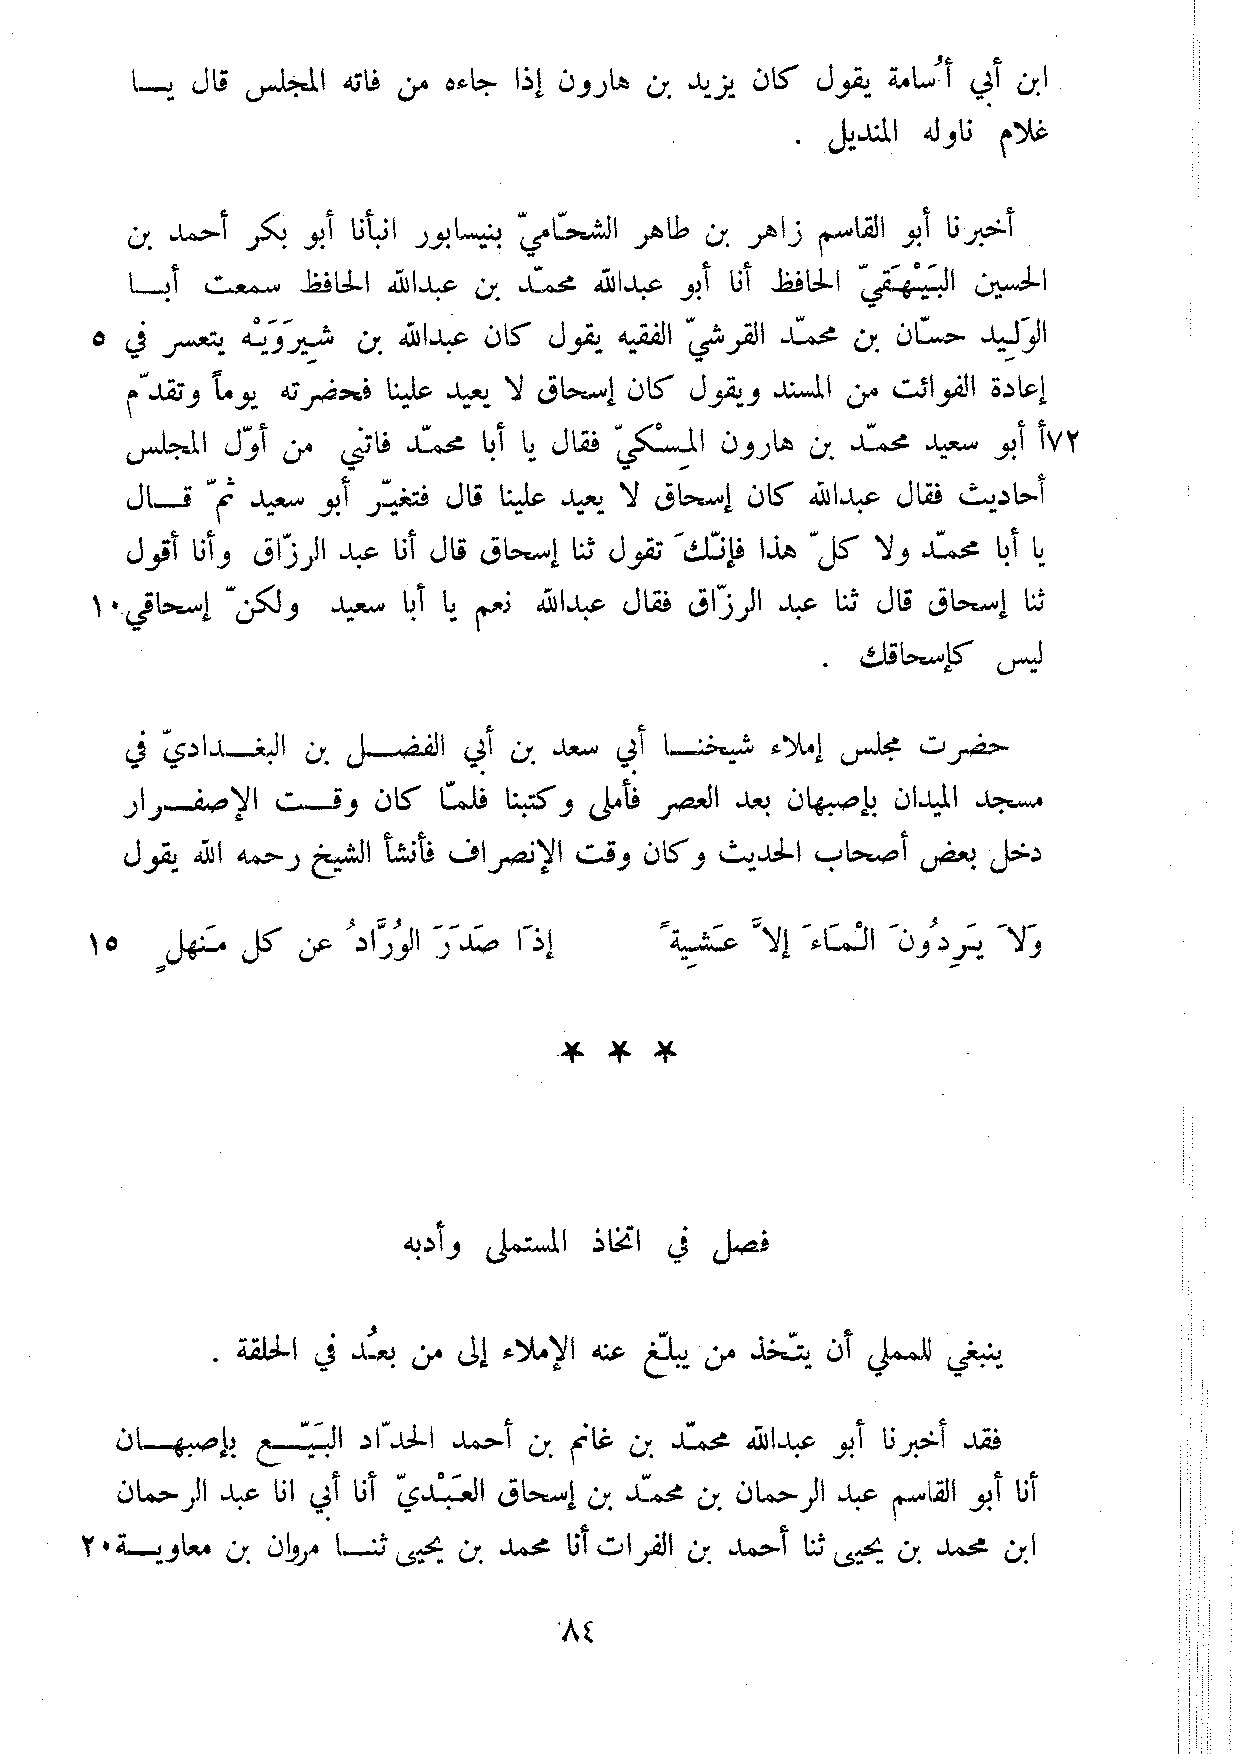 ابن أبي أُسامة يقول كان يزيد بن هارون إذا جاءه من فاته المجلس قال يـــا
غلام ناوله المنديل .
أخبرنا أبو القاسم زاهر بن طاهر الشحّاميّ بنيسابور انبأنا أبو بكر أحمد بن
الحسين البَيْهَقيّ الحافظ أنا أبو عبدالله محمّد بن عبدالله الحافظ سمعت أبــا
الوَلِيد حسّان بن محمّد القرشيّ الفقيه يقول كان عبدالله بن شِيرَوَيْه يتعسر في ٥
إعادة الفوائت من المسند ويقول كان إسحاق لا يعيد علينا فحضرته يوماً وتقدّم
٧٢أ أبو سعيد محمّد بن هارون المِسْكيّ فقال يا أبا محمّد فاتني من أوّل المجلس
أحاديث فقال عبدالله كان إسحاق لا يعيد علينا قال فتغيّر أبو سعيد ثمّ قــال
يا أبا محمّد ولا كلّ هذا فإنّكَ تقول ثنا إسحاق قال أنا عبد الرزّاق وأنا أقول
ثنا إسحاق قال ثنا عبد الرزّاق فقال عبدالله نعم يا أبا سعيد ولكنّ إسحاقي ١٠
ليس كإسحاقك .
حضرت مجلس إملاء شيخنــا أبي سعد بن أبي الفضــل بن البغــداديّ في
مسجد الميدان بإصبهان بعد العصر فأملى وكتبنا فلمّا كان وقــت الإصفــرار
دخل بعض أصحاب الحديث وكان وقت الإنصراف فأنشأ الشيخ رحمه الله يقول
وَلاَ يَرِدُونَ الْمَاءَ إلاَّ عَشِيةً إذَا صَدَرَ الوُرَّادُ عن كل مَنهلٍ ١٥
* * *
فصل في اتخاذ المستملي وأدبه
ينبغي للمملي أن يتّخذ من يبلّغ عنه الإملاء إلى من بعُد في الحلقة .
فقد أخبرنا أبو عبدالله محمّد بن غانم بن أحمد الحدّاد البَيّــع بإصبهــان
أنا أبو القاسم عبد الرحمان بن محمّد بن إسحاق العَبْديّ أنا أبي انا عبد الرحمان
ابن محمد بن يحيى ثنا أحمد بن الفرات أنا محمد بن يحيى ثنــا مروان بن معاويــة ٢٠
٨٤